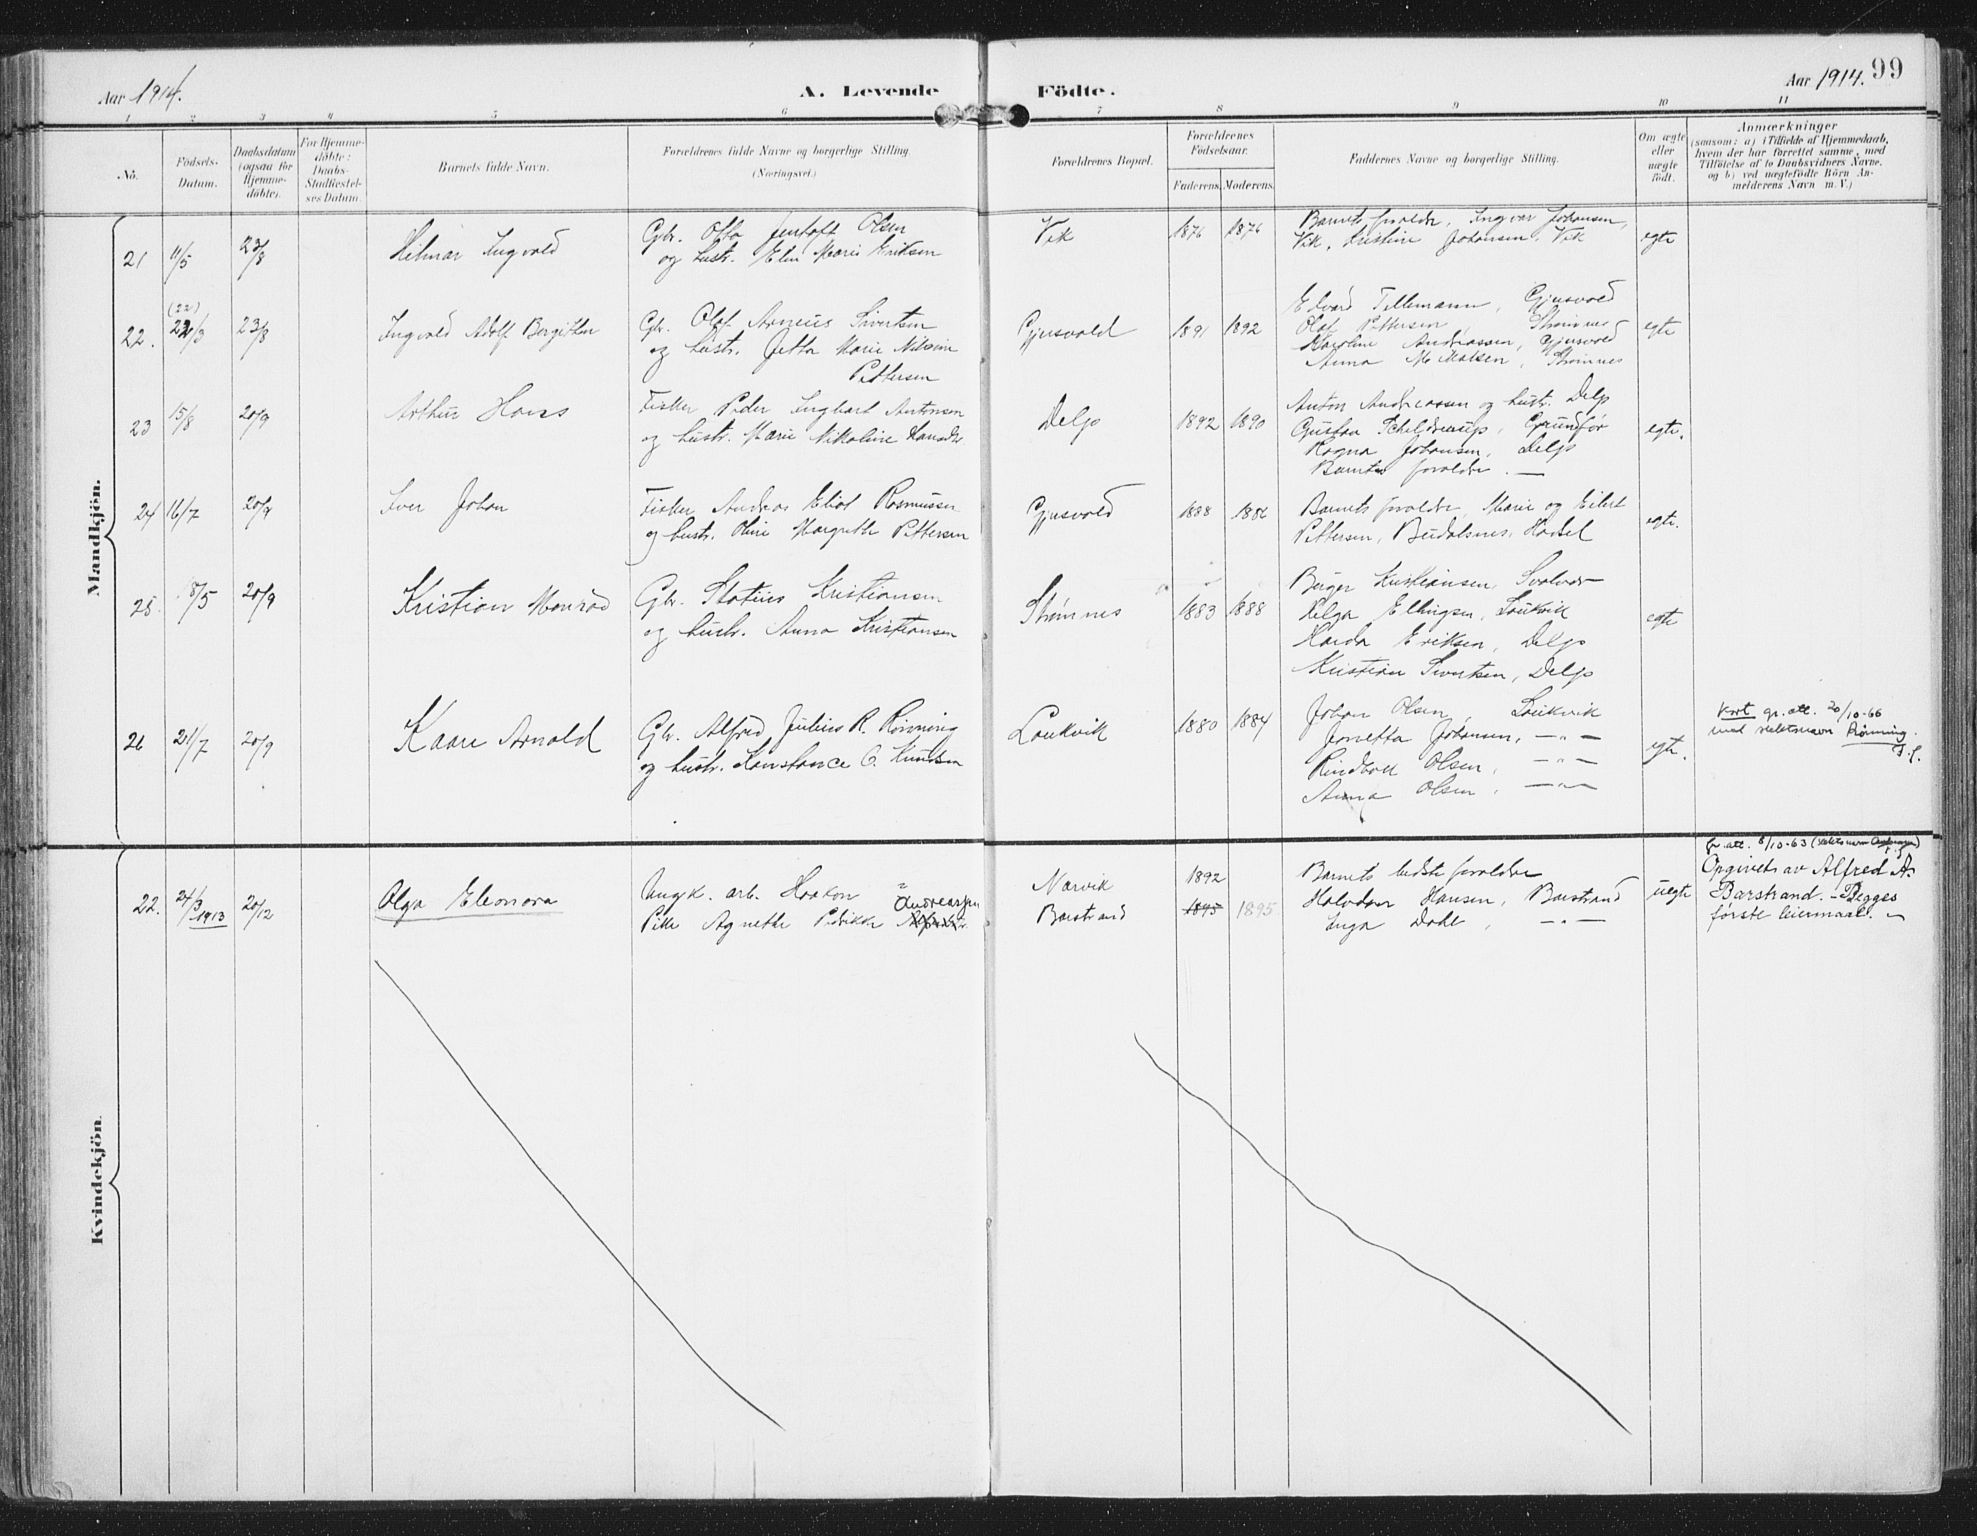 Aar 1914.
A. Levende
Födte.
Aar 1914. 99
1 2 3 4 5 6 7 8 9 10 11
Nö.
Födsels-
Datum.
Daabsdatum
(ogsaa for
Hjemme-
döbte).
For Hjemme-
döbte:
Daabs-
Stadfæstel-
ses Datum.
Barnets fulde Navn.
Forældrenes fulde Navne og borgerlige Stilling.
(Næringsvei.)
Forældrenes Bopæl.
Forældrenes
Födselsaar.
Faderens. Moderens.
Faddernes Navne og borgerlige Stilling.
Om ægte
eller
uægte
födt.
Anmærkninger
(saasom: a) i Tilfælde af Hjemmedaab,
hvem der har forrettet samme, med
Tilföielse af to Daabsvidners Navne.
og b) ved uægtefödte Börn An-
melderens Navn m. V.)
Mandkjön.
21 11/5 23/8 Hilmar Ingvald
Gbr. Otto Jentoft Olsen
og hustr. Elen Marie Eriksen
Vik 1876 1876
Barnets foreldre, Ingvar Johansen,
Vik, Kristine Johansen, Vik
egte
(22)
22. /3 23/8 Ingvald Adolf Bergiton
Gbr. Olaf Arneus Sivertsen
og hustr. Jetta Marie Nilsine
Pettersen
Gjusvold 1891 1892
Edvard Tellemann, Gjusvold
Olaf Pettersen, Strømnes
Karoline Andreassen, Gjusvold
Anna M. Matsen, Strømnes
egte
23 15/8 20/9 Arthur Hans
Fisker Peder Ingbart Antonsen
og hustr. Marie Nikoline
Delp 1892 1890
Anton Andreassen og hustr. Delp
Gustav Schelderup, Grundfør
Ragna Johansen, Delp
Barnets foreldre. —
egte.
24 16/7 20/9 Iver Johan
Fisker Andreas Eliot Rasmussen
og hustr. Oline Margrethe Pettersen
Gjusvold 1888 1886
Barnets foreldre, Marie og Eilert
Pettersen, Budalsnes, Hadsel
egte.
25. 8/5 20/9 Kristian Monrad
Gbr. Statius Kristiansen
og hustr. Anna Kristiansen
Strømnes 1883 1888
Birger Kristiansen Svolvær
Helga Ellingsen, Laukvik
Harda Eriksen, Delp
Kristian Sivertsen, Delp
egte
26 21/7 20/9 Kaare Arnold
Gbr. Alfred Julius R. Rønning
og hustr. Konstance C. Knutsen
Laukvik 1880 1884
Johan Olsen, Laukvik
Jonetta Johansen, — " —
Olsen, — " —
Anna Olsen, — " —
egte.
Kort gr. att. 20/10-66
med slektsnavn Rønning.
Kvindekjön.
22. 24/3 1913 20/12 Olga Eleonora
Ungk. arb. Haakon Andreassen
Pike Agnethe Pedrikke
Narvik
Barstrand
1892
1895 1895
Barnets bedste foreldre
Halvdan Hansen, Barstrand
Inga Dahl, — " —
uegte
gr. att. 8/10-63 (slektsnavn
Opgivets av Alfred A.
Barstrand. - Begges
første leiermaal. -